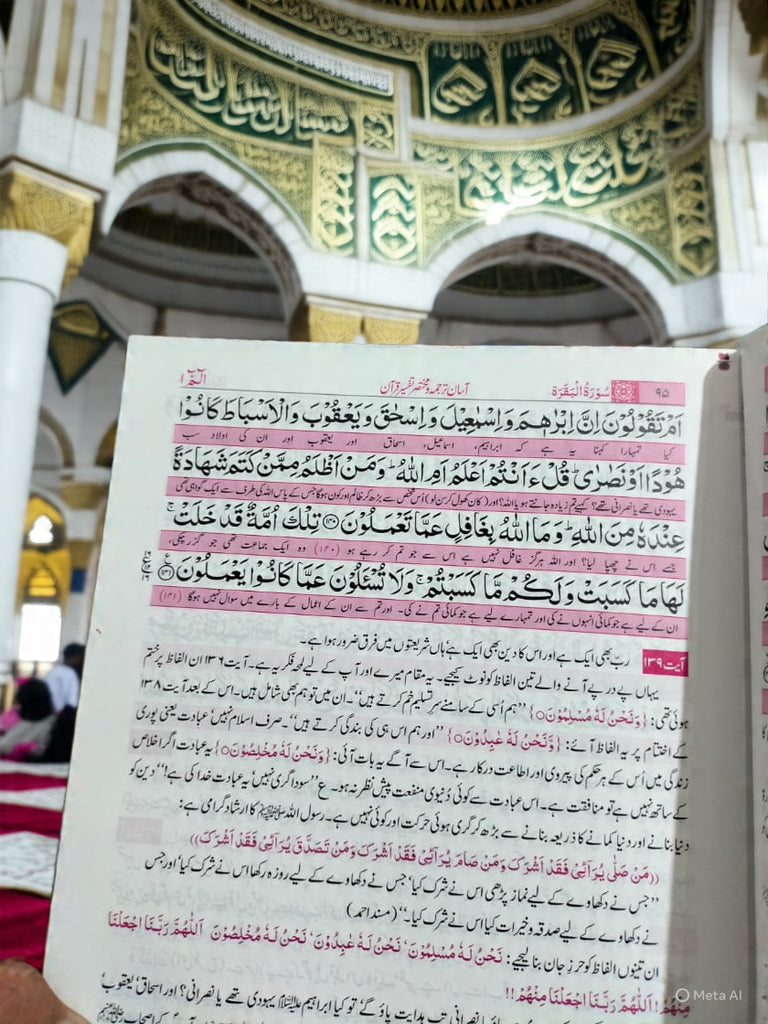 ۹۵ سُوْرَةُ الْبَقَرَة آسان ترجمہ و مختصر تفسیر قرآن الٓمّٓ ۱
اَمْ تَقُوْلُوْنَ اِنَّ اِبْرٰهٖمَ وَاِسْمٰعِيْلَ وَاِسْحٰقَ وَيَعْقُوْبَ وَالْاَسْبَاطَ كَانُوْا
کیا تمہارا کہنا یہ ہے کہ ابراہیم، اسماعیل، اسحاق اور یعقوب اور ان کی اولاد سب
هُوْدًا اَوْ نَصٰرٰى ؕ قُلْ ءَاَنْتُمْ اَعْلَمُ اَمِ اللّٰهُ ؕ وَمَنْ اَظْلَمُ مِمَّنْ كَتَمَ شَهَادَةً
یہودی تھے یا نصرانی تھے؟ کہیے تم زیادہ جانتے ہو یا اللہ؟ اور (کان کھول کر سن لو) اُس شخص سے بڑھ کر ظالم اور کون ہوگا جس کے پاس اللہ کی طرف سے ایک گواہی تھی
عِنْدَهٗ مِنَ اللّٰهِ ؕ وَمَا اللّٰهُ بِغَافِلٍ عَمَّا تَعْمَلُوْنَ ﴿۱۴۰﴾ تِلْكَ اُمَّةٌ قَدْ خَلَتْ ۚ
جسے اس نے چھپا لیا؟ اور اللہ ہرگز غافل نہیں ہے اس سے جو تم کر رہے ہو (۱۴۰) وہ ایک جماعت تھی جو گزر چکی،
لَهَا مَا كَسَبَتْ وَلَكُمْ مَّا كَسَبْتُمْ ۚ وَلَا تُسْئَلُوْنَ عَمَّا كَانُوْا يَعْمَلُوْنَ ﴿۱۴۱﴾
ان کے لیے ہے جو کمائی انہوں نے کی اور تمہارے لیے ہے جو کمائی تم نے کی۔ اور تم سے ان کے اعمال کے بارے میں سوال نہیں ہوگا (۱۴۱)
ربّ بھی ایک ہے اور اس کا دین بھی ایک ہے ہاں شریعتوں میں فرق ضرور ہوا ہے۔
آیت ۱۳۹ یہاں پے در پے آنے والے تین الفاظ کو نوٹ کیجیے۔ یہ مقام میرے اور آپ کے لیے لمحہ فکریہ ہے۔ آیت ۱۳۶ ان الفاظ پر ختم
ہوئی تھی: {وَنَحْنُ لَهٗ مُسْلِمُوْنَ} ’’ہم اُسی کے سامنے سرِ تسلیم خم کرتے ہیں‘‘۔ ان میں تو ہم بھی شامل ہیں۔ اس کے بعد آیت ۱۳۸
کے اختتام پر یہ الفاظ آئے: {وَنَحْنُ لَهٗ عٰبِدُوْنَ} ’’اور ہم اس ہی کی بندگی کرتے ہیں‘‘۔ صرف اسلام نہیں’ عبادت یعنی پوری
زندگی میں اُس کے ہر حکم کی پیروی اور اطاعت درکار ہے۔ اس سے آگے یہ بات آئی: {وَنَحْنُ لَهٗ مُخْلِصُوْنَ} یہ عبادت اگر اخلاص
کے ساتھ نہیں ہے تو منافقت ہے۔ اس عبادت سے کوئی دُنیوی منفعت پیش نظر نہ ہو۔ ع ’’سوداگری نہیں یہ عبادت خدا کی ہے!‘‘ دین کو
دنیا بنانے اور دنیا کمانے کا ذریعہ بنانے سے بڑھ کر گری ہوئی حرکت اور کوئی نہیں ہے۔ رسول اللہ ﷺ کا ارشاد گرامی ہے:
((مَنْ صَلّٰى يُرَآئِىْ فَقَدْ اَشْرَكَ وَمَنْ صَامَ يُرَآئِىْ فَقَدْ اَشْرَكَ وَمَنْ تَصَدَّقَ يُرَآئِىْ فَقَدْ اَشْرَكَ))
’’جس نے دکھاوے کے لیے نماز پڑھی اس نے شرک کیا’ جس نے دکھاوے کے لیے روزہ رکھا اس نے شرک کیا’ اور جس
نے دکھاوے کے لیے صدقہ و خیرات کیا اس نے شرک کیا۔‘‘ (مسند احمد)
ان تینوں الفاظ کو حرزِ جان بنا لیجیے: نَحْنُ لَهٗ مُسْلِمُوْنَ’ نَحْنُ لَهٗ عٰبِدُوْنَ’ نَحْنُ لَهٗ مُخْلِصُوْنَ اَللّٰهُمَّ رَبَّنَا اجْعَلْنَا
مِنْهُمْ! اَللّٰهُمَّ رَبَّنَا اجْعَلْنَا مِنْهُمْ!!
یا نصرانی تب ہدایت پاؤ گے’ تو کیا ابراہیم یہودی تھے یا نصرانی؟ اور اسحاق’ یعقوب’
Meta AI